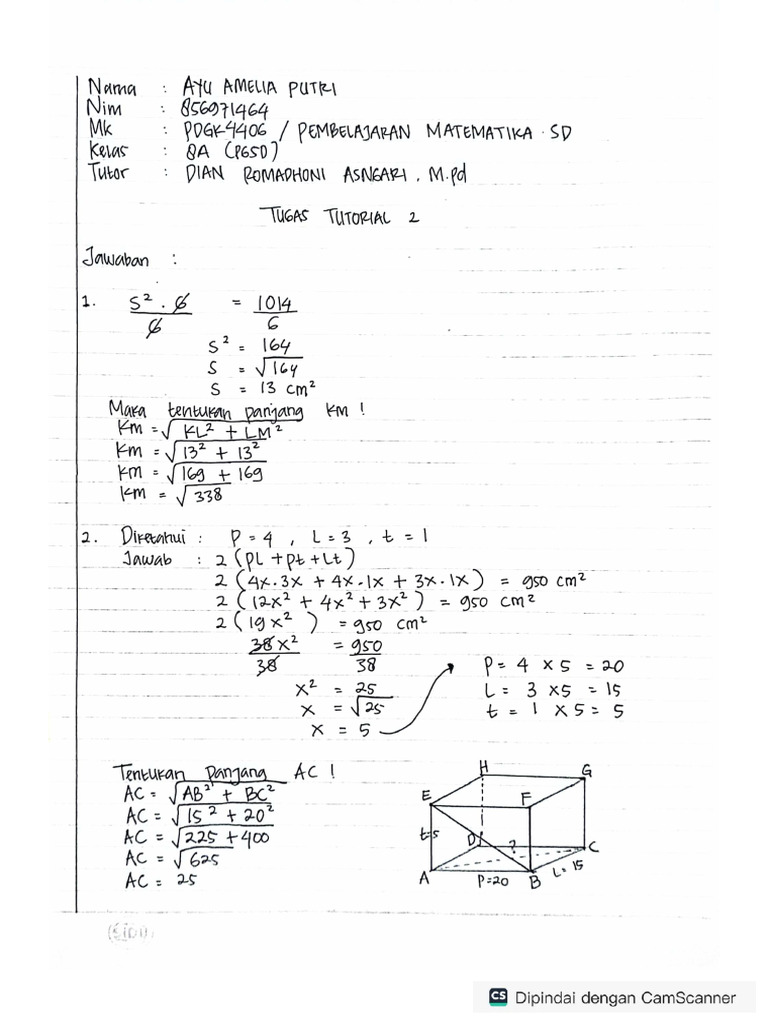 Nama : AYU AMELIA PUTRI
Nim : 856971464
Mk : PDGK4406 / PEMBELAJARAN MATEMATIKA SD
Kelas : 8A (PGSD)
Tutor : DIAN ROMADHONI ASNGARI, M.pd
TUGAS TUTORIAL 2
Jawaban :
1. S² . 6 / 6 = 1014 / 6
S² = 164
S = √164
S = 13 cm²
Maka tentukan panjang KM !
KM = √KL² + LM²
KM = √13² + 13²
KM = √169 + 169
KM = √338
2. Diketahui : P = 4 , L = 3 , t = 1
Jawab : 2 (PL + pt + Lt)
2 (4x . 3x + 4x . 1x + 3x . 1x) = 950 cm²
2 (12x² + 4x² + 3x²) = 950 cm²
2 (19x²) = 950 cm²
38x² / 38 = 950 / 38
x² = 25
x = √25
x = 5
P = 4 x 5 = 20
L = 3 x 5 = 15
t = 1 x 5 = 5
Tentukan Panjang AC !
AC = √AB² + BC²
AC = √15² + 20²
AC = √225 + 400
AC = √625
AC = 25
H G
E F
t=5 D ? C
A P=20 B L=15
CS Dipindai dengan CamScanner